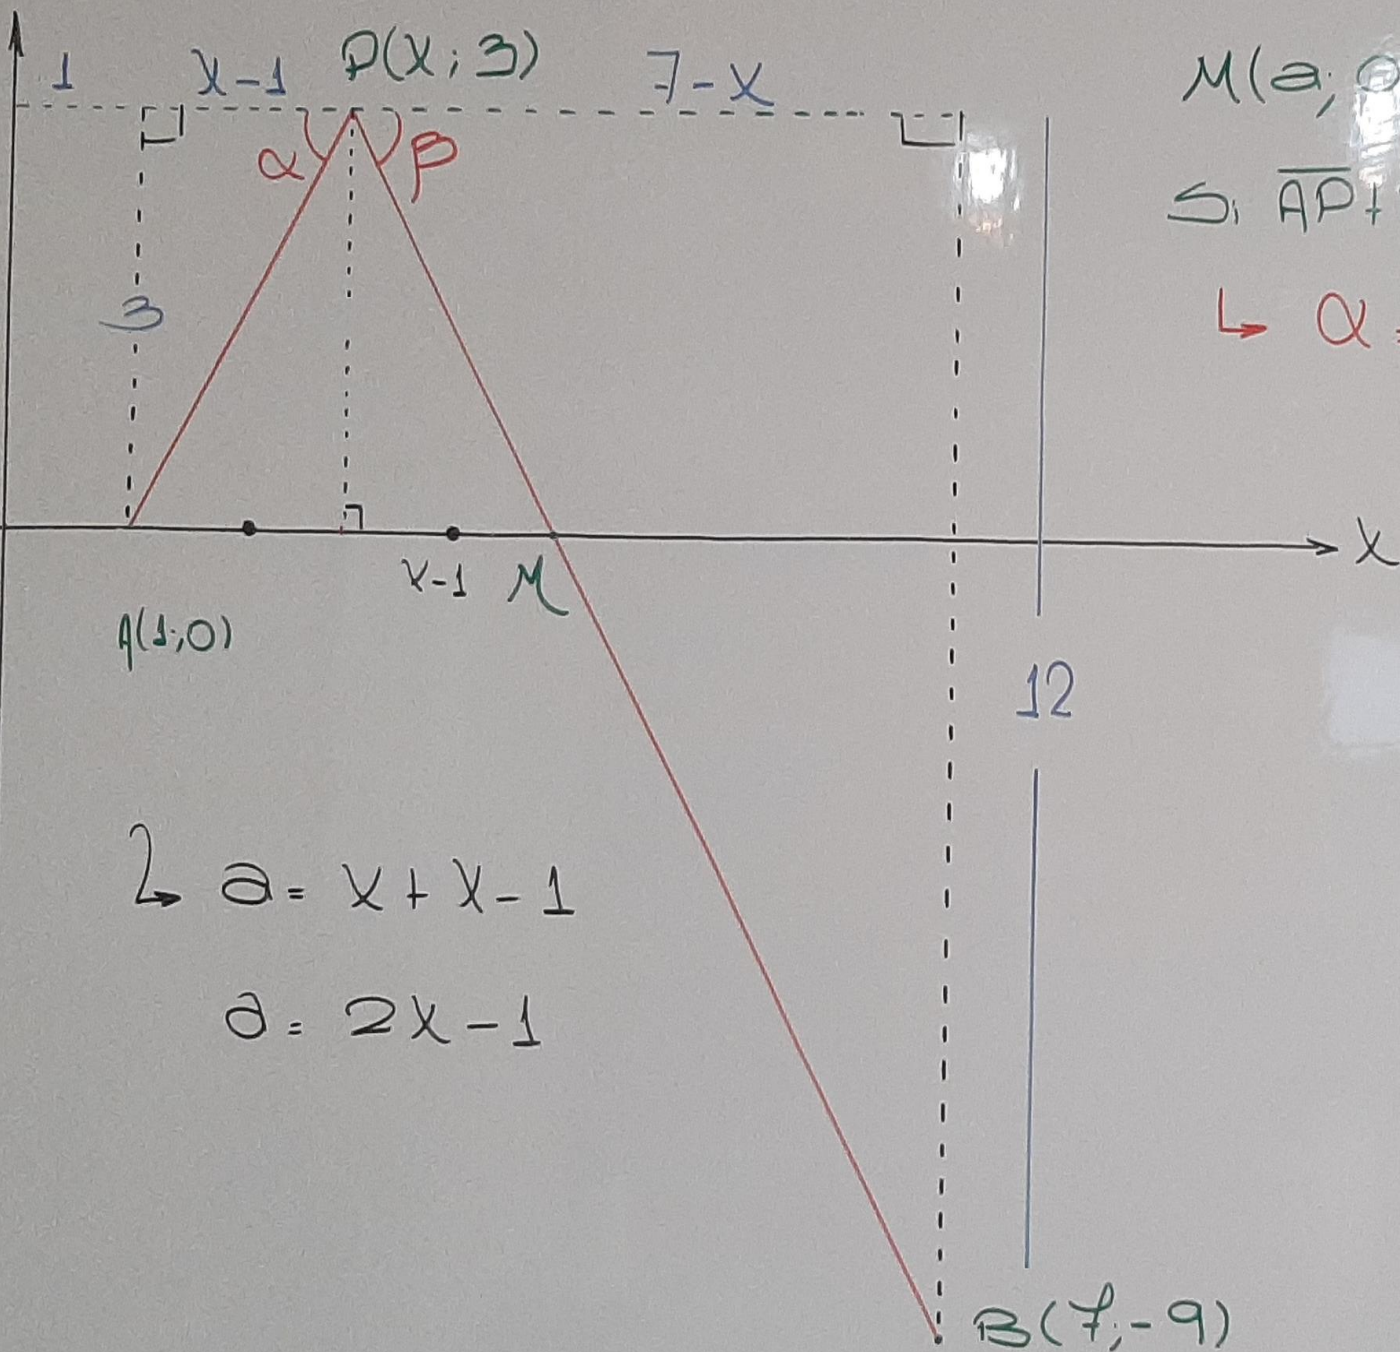 1 x-1 P(x; 3) 7-x
M(a;
α β
Si AP+
3
↳ α
x
x-1 M
A(1;0)
12
↳ a= x+x-1
a= 2x-1
B(7;-9)